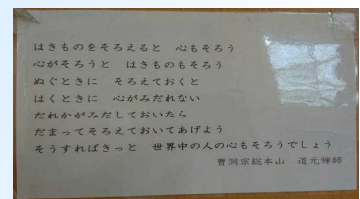 はきものをそろえると　心もそろう
心がそろうと　はきものもそろう
ぬぐときに　そろえておくと
はくときに　心がみだれない
だれかがみだしておいたら
だまってそろえておいてあげよう
そうすればきっと　世界中の人の心もそろうでしょう
曹洞宗総本山　道元禅師